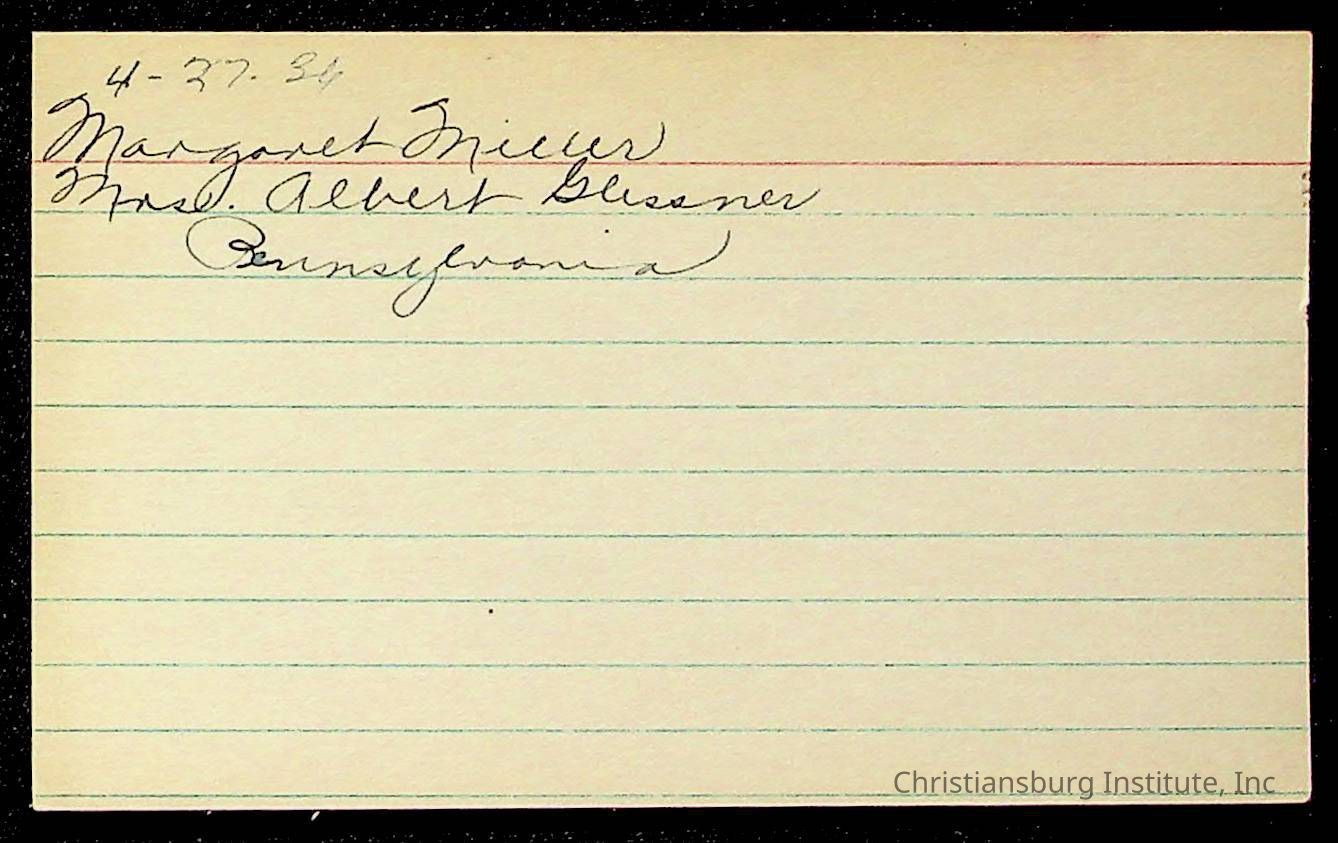 4-27-36
Margaret Miller
Mrs. Albert Glessner
Pennsylvania
Christiansburg Institute, Inc